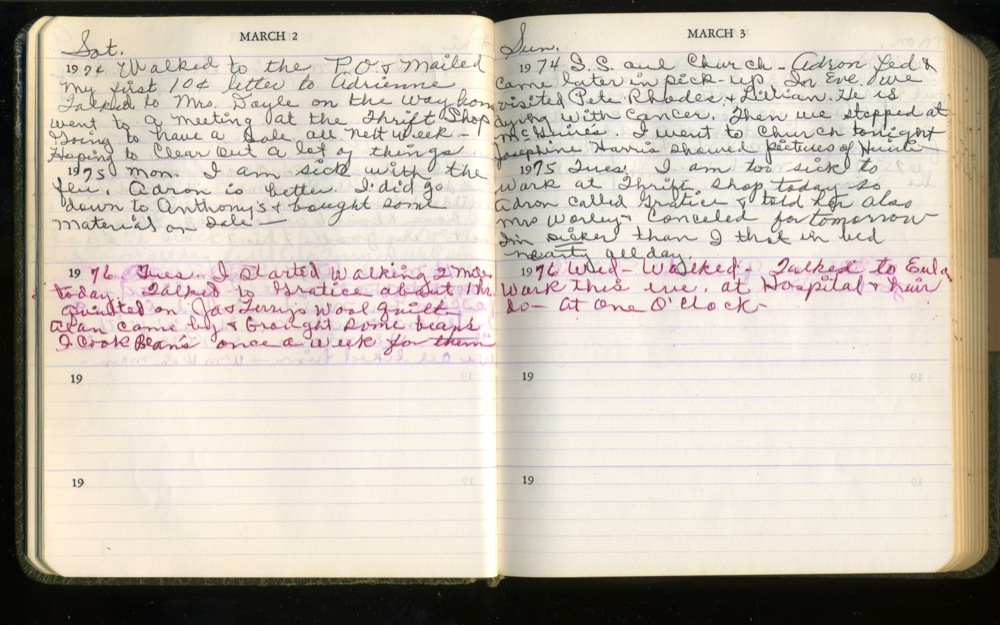 MARCH 2
Sat.
1974 Walked to the P.O. & Mailed
my first 10¢ letter to Adrienne
Talked to Mrs. Doyle on the way home
went to a meeting at the Thrift Shop
Going to have a Sale all next week -
Hoping to Clear out a lot of things.
1975 Mon. I am sick with the
flu. Adron is better. I did go
down to Anthony's & bought some
Material on Sale -
1976 Tues. I started Walking 2 miles
today. Talked to Gratice about 1 hr.
quilted on Ja & Terry's Wool quilt
Alan came by & brought some beans
I Cook Beans once a week for them
19
19
MARCH 3
Sun.
1974 S.S. and Church - Adron fed &
came later in pick-up. In Eve. we
visited Pete Rhodes & Lillian. He is
dying with Cancer. Then we stopped at
McGuires. I went to Church tonight
Josephine Harris showed pictures of
1975 Tues. I am too sick to
work at Thrift Shop today so
Adron called Gratice & told her also
Mrs Worley & Canceled for tomorrow
Im sicker than I that in bed
nearly all day.
1976 Wed - Walked - Talked to Eula
Work this eve. at Hospital & hair
do - At One O'Clock -
19
19